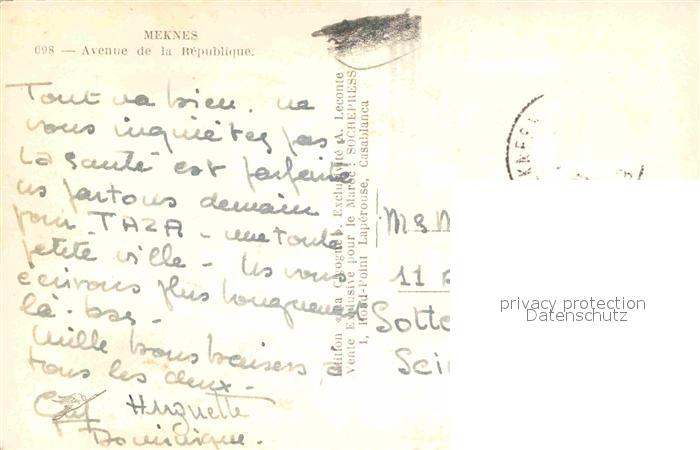 MEKNES
098 — Avenue de la République.
Tout va bien, ne
vous inquiétez pas.
La santé est parfaite
ns partons demain
pour TAZA - une toute
petite ville - Ns vous
écrirons plus longuement
là-bas -
Mille bons baisers à
tous les deux -
Huguette
Dominique.
Edition « La Cigogne ». Exclusivité A. Leconte
Vente Exclusive pour le Maroc : SOCHEPRESS
1, Rond-Point Lapérouse, Casablanca
KNES
11
Sotte
Sei
privacy protection
Datenschutz